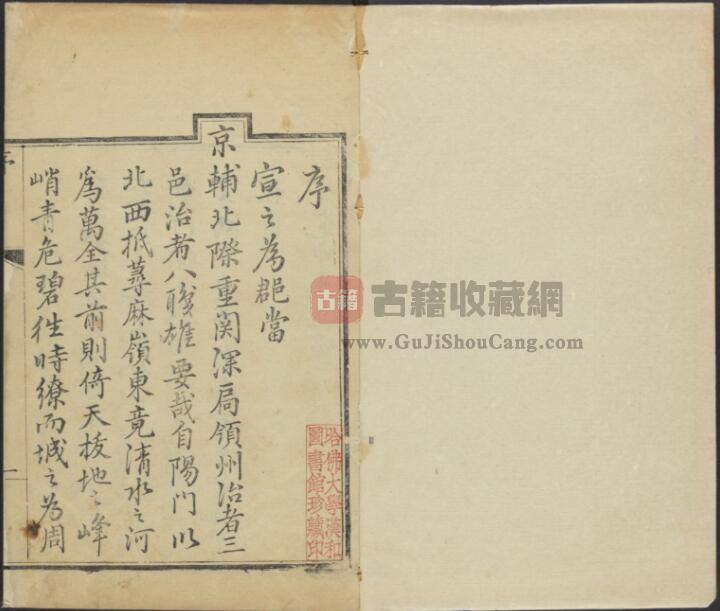 序
宣之為郡當
京輔北際重関深扃領州治者三
邑治者八殘雄要哉自陽門以
北西抵蓦麻嶺東竟清水之河
為萬全其前則倚天拔地之峰
峭青危碧往時繚而城之為周
哈佛大學漢和
圖書館珍藏印
古籍
古籍收藏網
www.GuJiShouCang.com